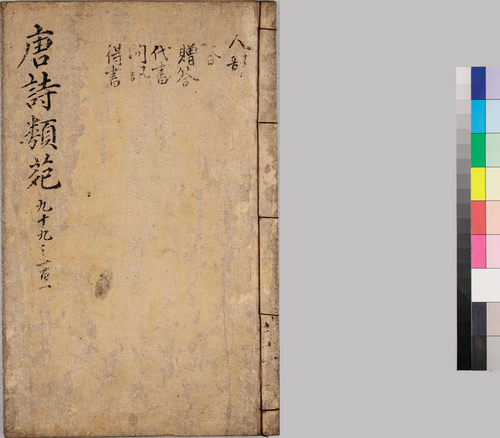 人部
答
贈答
代書
問訊
得書
唐詩類苑 九十九之一百一